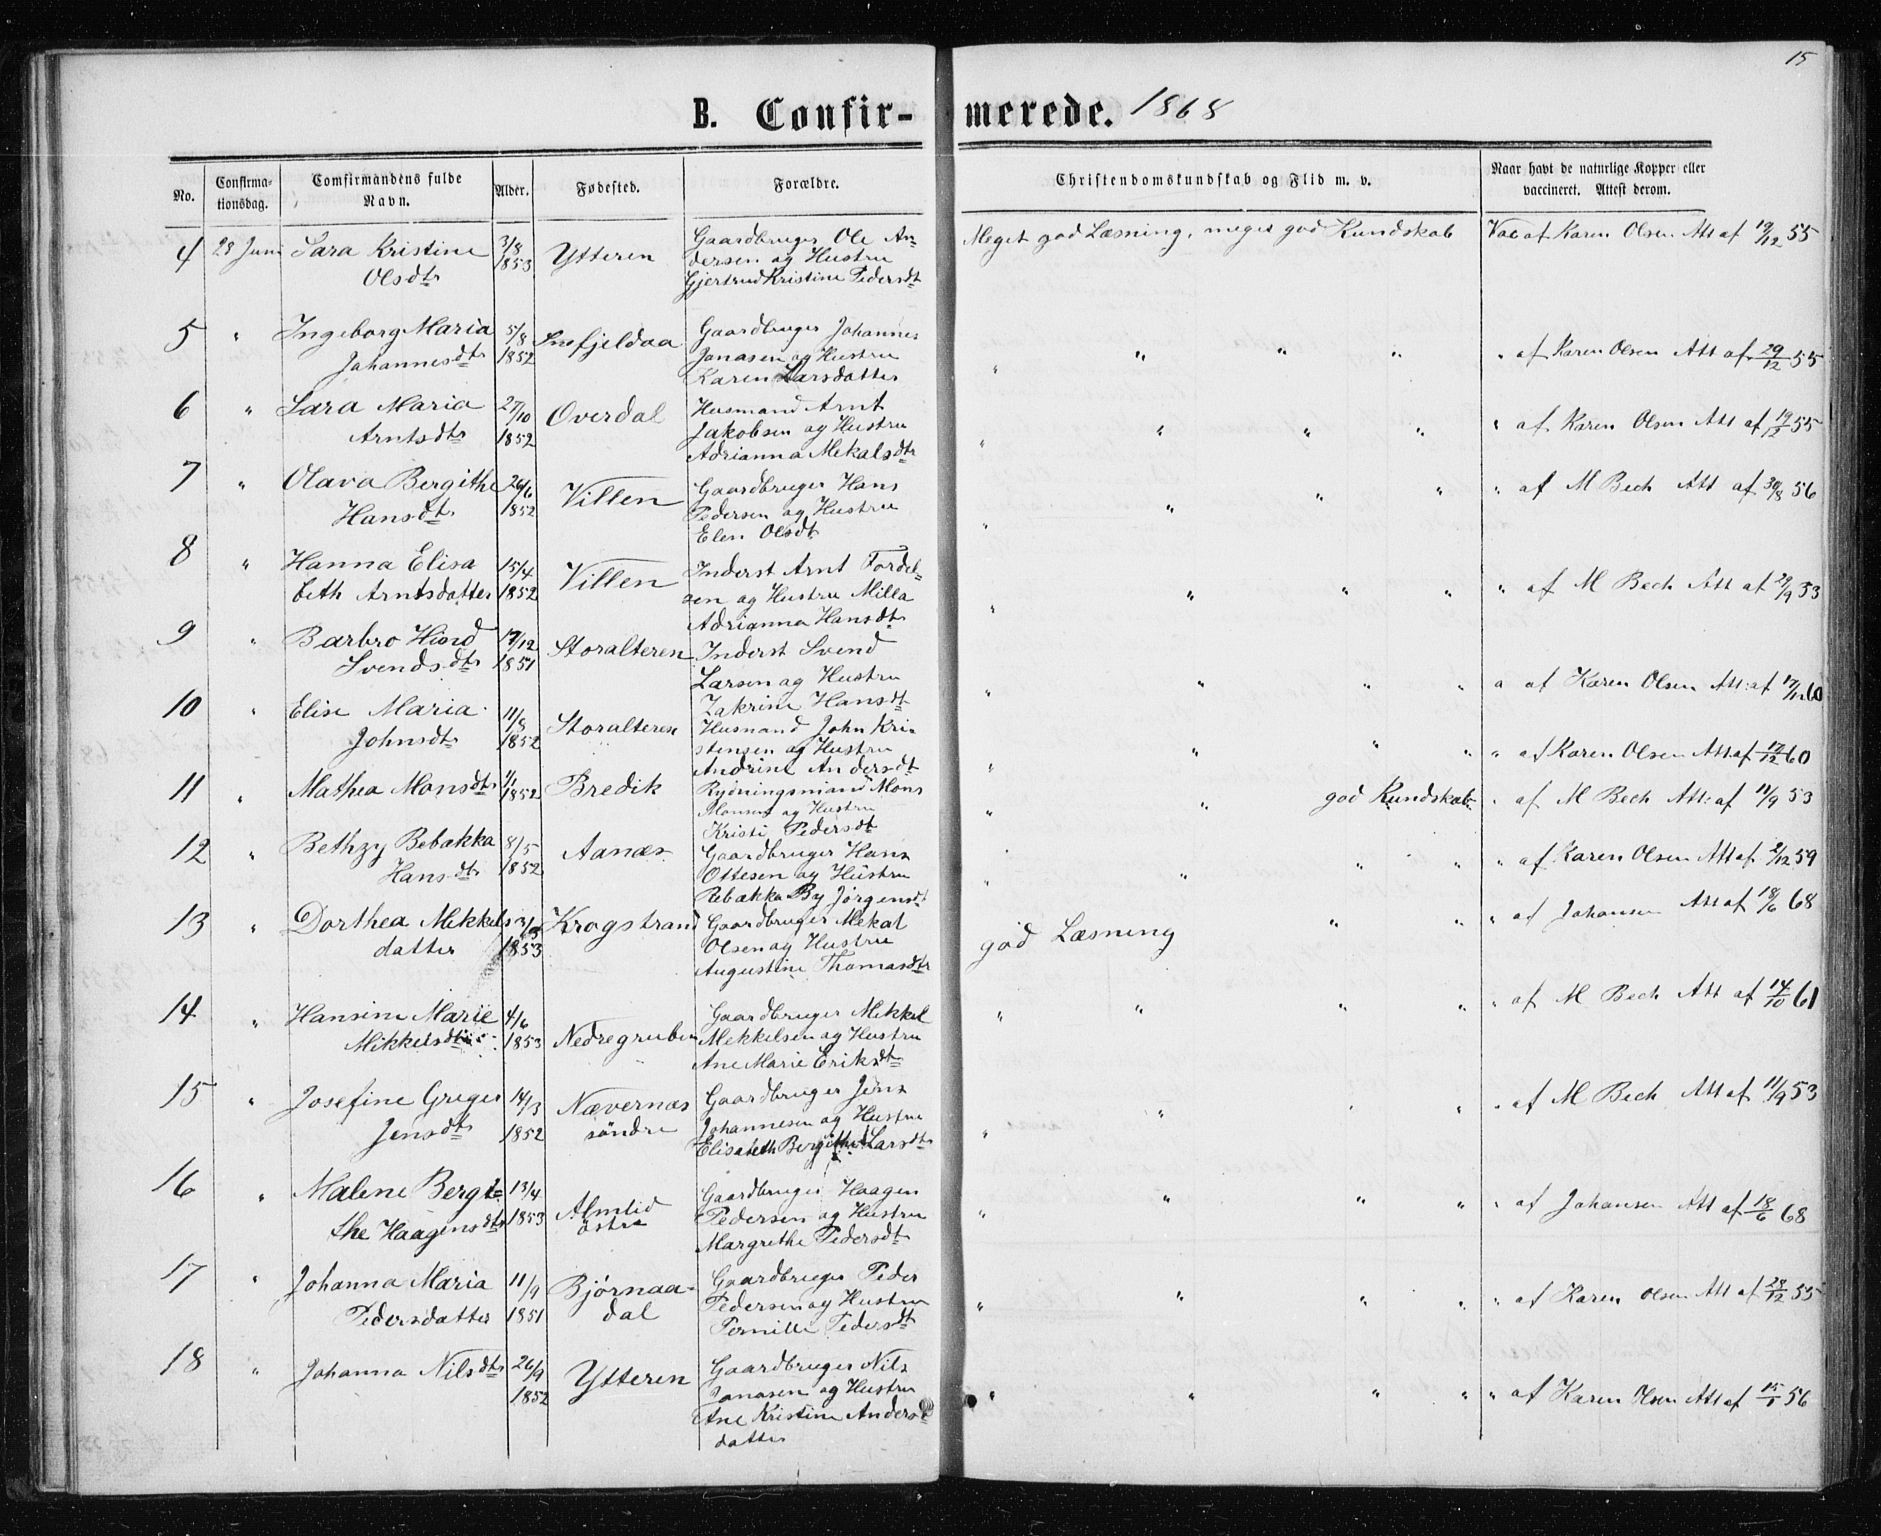 15
B. Confir- merede. 1868
No. Confirma-tionsdag. Comfirmandens fulde Navn. Alder. Fødested. Forældre. Christendomskundskab og Flid m. v. Naar havt de naturlige Kopper eller vaccineret. Attest derom.
4 28 Juni Sara Kristine 3/8 Ytteren Gaardbruger Ole An- Meget god Læsning, meget god Kundskab Vac af Karen Olsen Att af 19/12 55
Olsdtr 1853 dersen og Hustru
Gjertrud Kristine Pedersdt
5 " Ingeborg Maria 5/8 Snefjeldaa Gaardbruger Johannes " " " " " af Karen Olsen Att af 29/12 55
Johannesdtr 1852 Jonasen og Hustru
Karen Larsdatter
6 " Sara Maria 27/10 Overdal Husmand Arnt " " " " " af Karen Olsen Att af 19/12 55
Arntsdtr 1852 Jakobsen og Hustru
Adrianna Mekalsdtr
7 " Olava Bergithe 26/6 Villen Gaardbruger Hans " " " " " af M Bech Att af 30/8 56
Hansdt 1852 Pedersen og Hustru
Elen Olsdt
8 " Hanna Elisa 15/4 Villen Inderst Arnt Fordel- " " " " " af M Bech Att af 29/9 53
beth Arntsdatter 1852 sen og Hustru Milla
Adrianna Hansdt
9 " Barbro 17/12 Storalteren Inderst Svend " " " " af Karen Olsen Att: af 17/12 60
Svendsdtr 1851 Larsen og Hustru
Zakrine Hansdt
10 " Elise Maria 11/8 Storalteren Husmand John Kri- " " " " " af Karen Olsen Att af 17/12 60
Johnsdt 1852 stensen og Hustru
Andrine Andersdt
11 " Mathea Monsdtr 1/1 1852 Bredik Rydningsmand Mons " " god Kundskab " af M Bech Att: af 11/9 53
Monsen og Hustru
Kristi Pedersdt
12 " Bethzy Bebakka 8/5 Aanæs Gaardbruger Hans " " " " " af Karen Olsen Att af 2/12 59
Hansdt 1852 Ottesen og Hustru
Rebakka By Jørgensdt
13 " Dorthea Mikkels Krogstrand Gaardbruger Mekal god Læsning " " " af Johansen Att af 18/6 68
datter 1853 Olsen og Hustru
Augustine Thomasdtr
14 " Hansine Marie 4/6 Nedregruben Gaardbruger Mikkel " " " " " af M Bech Att af 14/10 61
Mikkelsdtr 1853 Mekkelsen og Hustru
Ane Marie Eriksdt
15 " Josefine Greger 14/3 Nævernæs Gaardbruger Jens " " " " " af M Bech Att af 11/9 53
Jensdt 1852 söndre Johannesen og Hustru
Elisabeth Bergithe Larsdtr
16 " Malene Bergi- 13/4 Almlid Gaardbruger Haagen " " " " " af Johansen Att af 18/6 68
the Haagensdtr 1853 östre Pedersen og Hustru
Margrethe Pedersdt
17 " Johanna Maria 11/9 Bjørnaa- Gaardbruger Peder " " " " " af Karen Olsen Att af 28/12 55
Pedersdatter 1851 dal Pedersen og Hustru
Pernille Pedersdt
18 " Johanna Nilsdtr 26/9 Ytteren Gaardbruger Nils " " " " " af Karen Olsen Att af 15/1 56
1852 Jonasen og Hustru
Ane Kristine Anders
datter